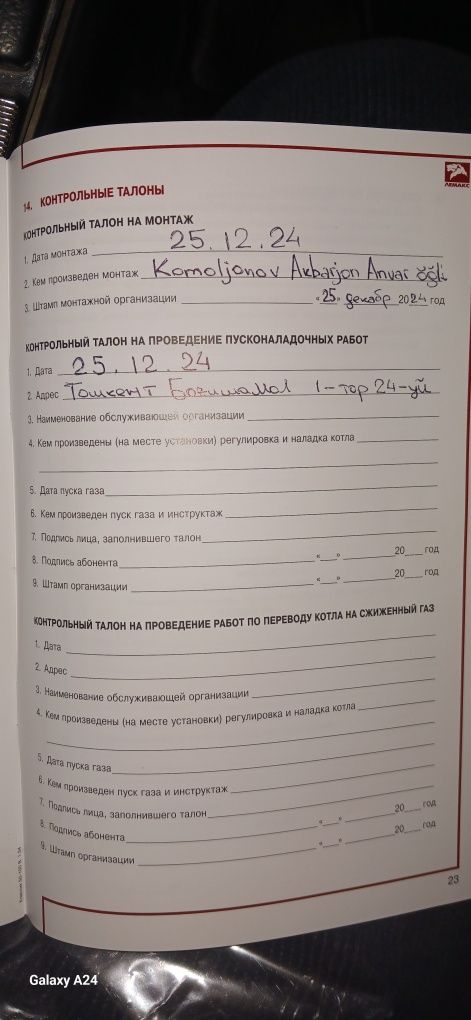 ЛЕМАКС
14. КОНТРОЛЬНЫЕ ТАЛОНЫ
КОНТРОЛЬНЫЙ ТАЛОН НА МОНТАЖ
1. Дата монтажа 25.12.24
2. Кем произведен монтаж Komoljonov Akbarjon Anvar õğli
3. Штамп монтажной организации «25» декабр 2024 год
КОНТРОЛЬНЫЙ ТАЛОН НА ПРОВЕДЕНИЕ ПУСКОНАЛАДОЧНЫХ РАБОТ
1. Дата 25.12.24
2. Адрес Тошкент Боғишамол 1-тор 24-уй
3. Наименование обслуживающей организации
4. Кем произведены (на месте установки) регулировка и наладка котла
5. Дата пуска газа
6. Кем произведен пуск газа и инструктаж
7. Подпись лица, заполнившего талон
8. Подпись абонента «__» 20__ год
9. Штамп организации «__» 20__ год
КОНТРОЛЬНЫЙ ТАЛОН НА ПРОВЕДЕНИЕ РАБОТ ПО ПЕРЕВОДУ КОТЛА НА СЖИЖЕННЫЙ ГАЗ
1. Дата
2. Адрес
3. Наименование обслуживающей организации
4. Кем произведены (на месте установки) регулировка и наладка котла
5. Дата пуска газа
6. Кем произведен пуск газа и инструктаж
7. Подпись лица, заполнившего талон
8. Подпись абонента «__» 20__ год
9. Штамп организации «__» 20__ год
23
Galaxy A24